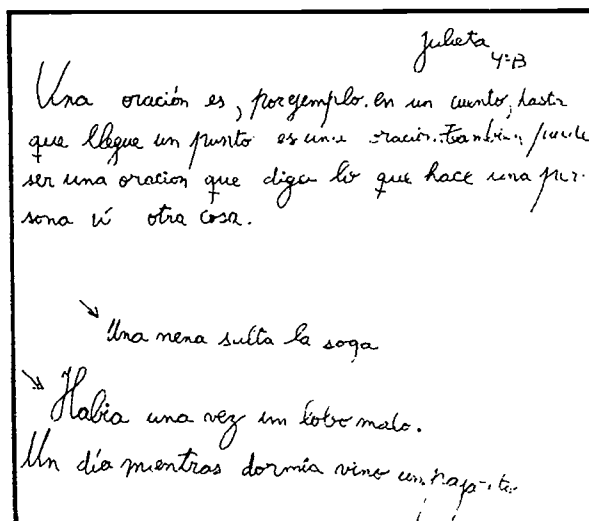 Julieta
4ºB
Una oración es, por ejemplo. en un cuento, hasta
que llegue un punto es una oración. también puede
ser una oracion que diga lo que hace una per-
sona ú otra cosa.
Una nena salta la soga
Habia una vez un lobo malo.
Un día mientras dormía vino un